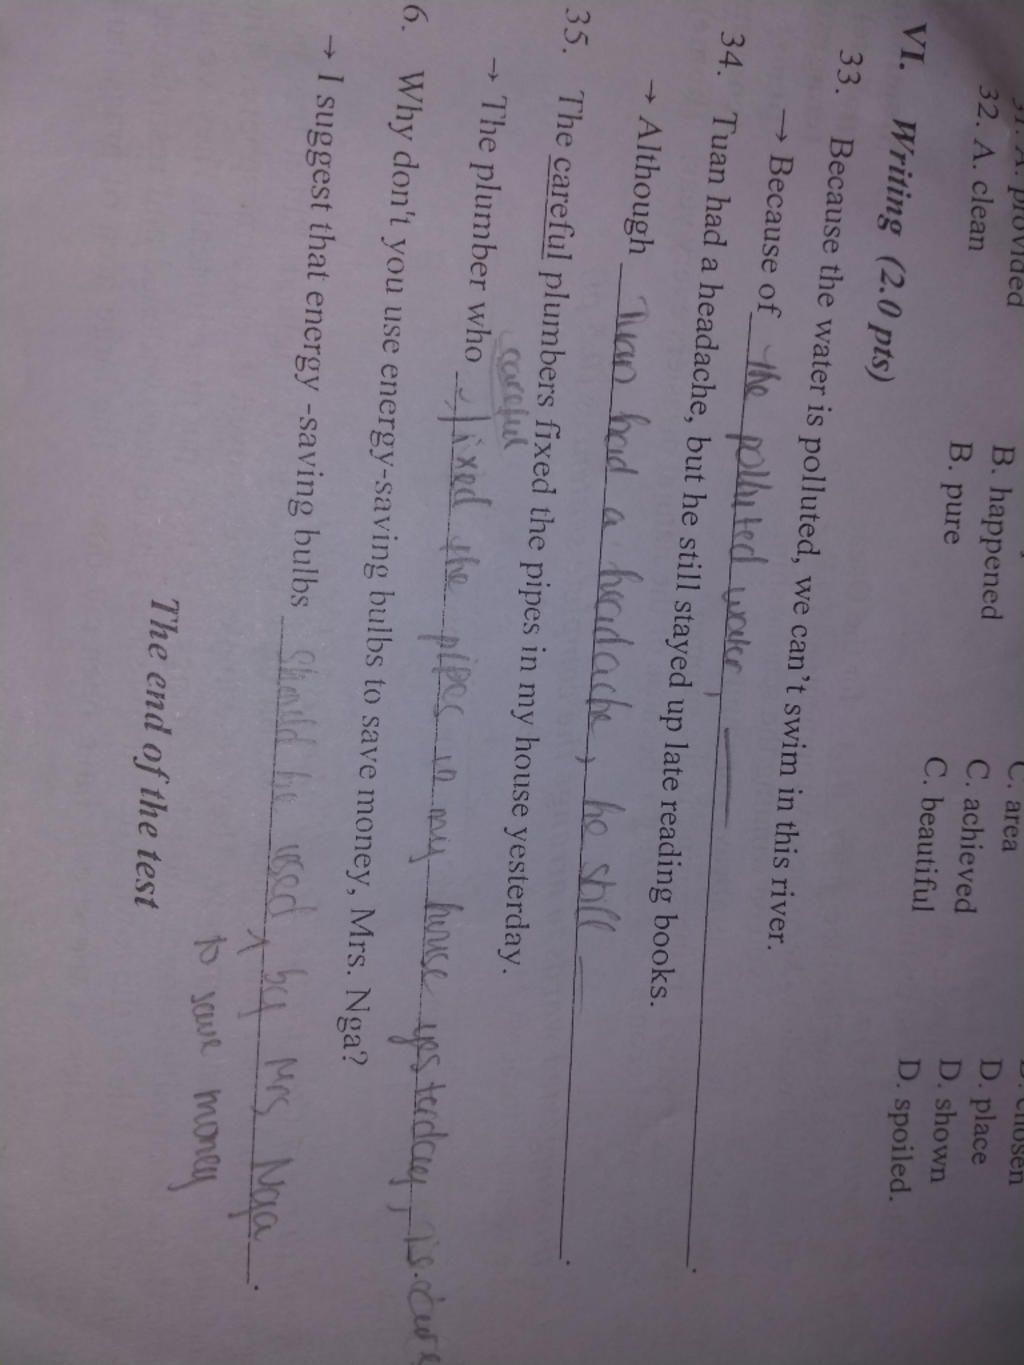 provided
C. area
32. A. clean
B. happened
C. achieved
D. place
B. pure
C. beautiful
D. shown
D. spoiled.
VI. Writing (2.0 pts)
33. Because the water is polluted, we can't swim in this river.
→ Because of the polluted water,
34. Tuan had a headache, but he still stayed up late reading books.
→ Although Tuan had a headache, he still
35. The careful plumbers fixed the pipes in my house yesterday.
careful
→ The plumber who fixed the pipes in my house yesterday, is
6. Why don't you use energy-saving bulbs to save money, Mrs. Nga?
→ I suggest that energy -saving bulbs should be used by Mrs Nga.
to save money
The end of the test